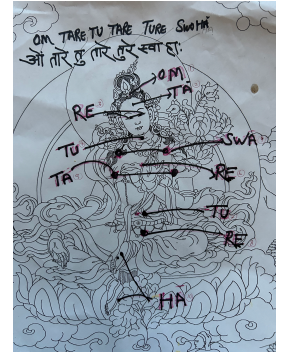 OM TARE TU TARE TURE SWOHA
ओं तारे तु तारे तुरे स्वा हाः
OM
TA
RE
TU
SWA
TA
RE
TU
RE
HA